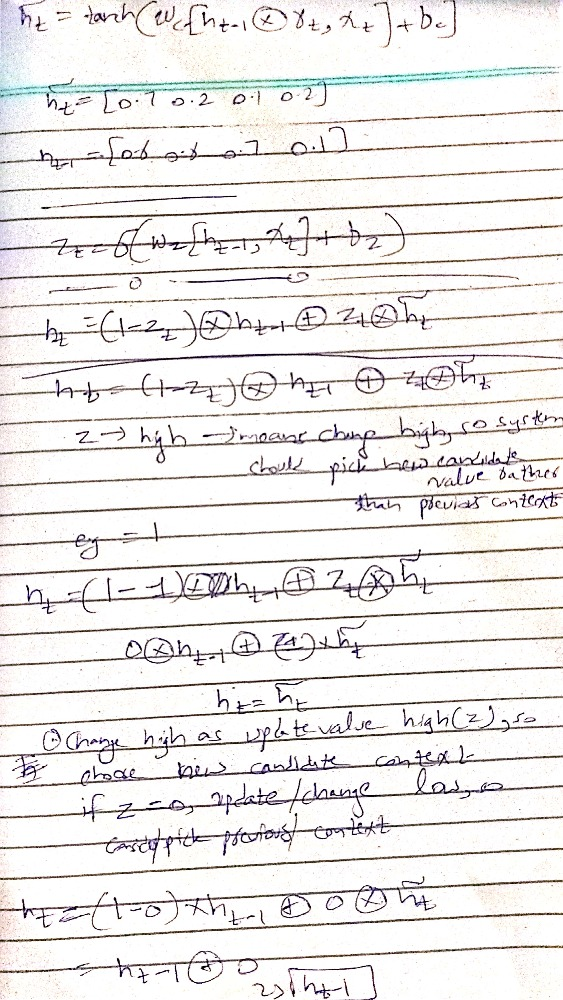 h̃t = tanh(Wc[ht-1 ⊗ rt, xt] + bc]
h̃t = [0.7 0.2 0.1 0.2]
ht-1 = [0.6 0.8 0.7 0.1]
zt = σ(Wz[ht-1, xt] + bz)
ht = (1-zt) ⊗ ht-1 ⊕ zt ⊗ h̃t
ht = (1-zt) ⊗ ht-1 ⊕ zt ⊗ h̃t
z → high → means change high, so system
should pick new candidate
value rather
than previous context
eg = 1
ht = (1-1) ⊗ ht-1 ⊕ zt ⊗ h̃t
0 ⊗ ht-1 ⊕ (zt) × h̃t
ht = h̃t
change high as update value high(z), so
choose new candidate context
if z = 0, update/change low, so
pick previous context
ht = (1-0) × ht-1 ⊕ 0 ⊗ h̃t
= ht-1 ⊕ 0
ht-1